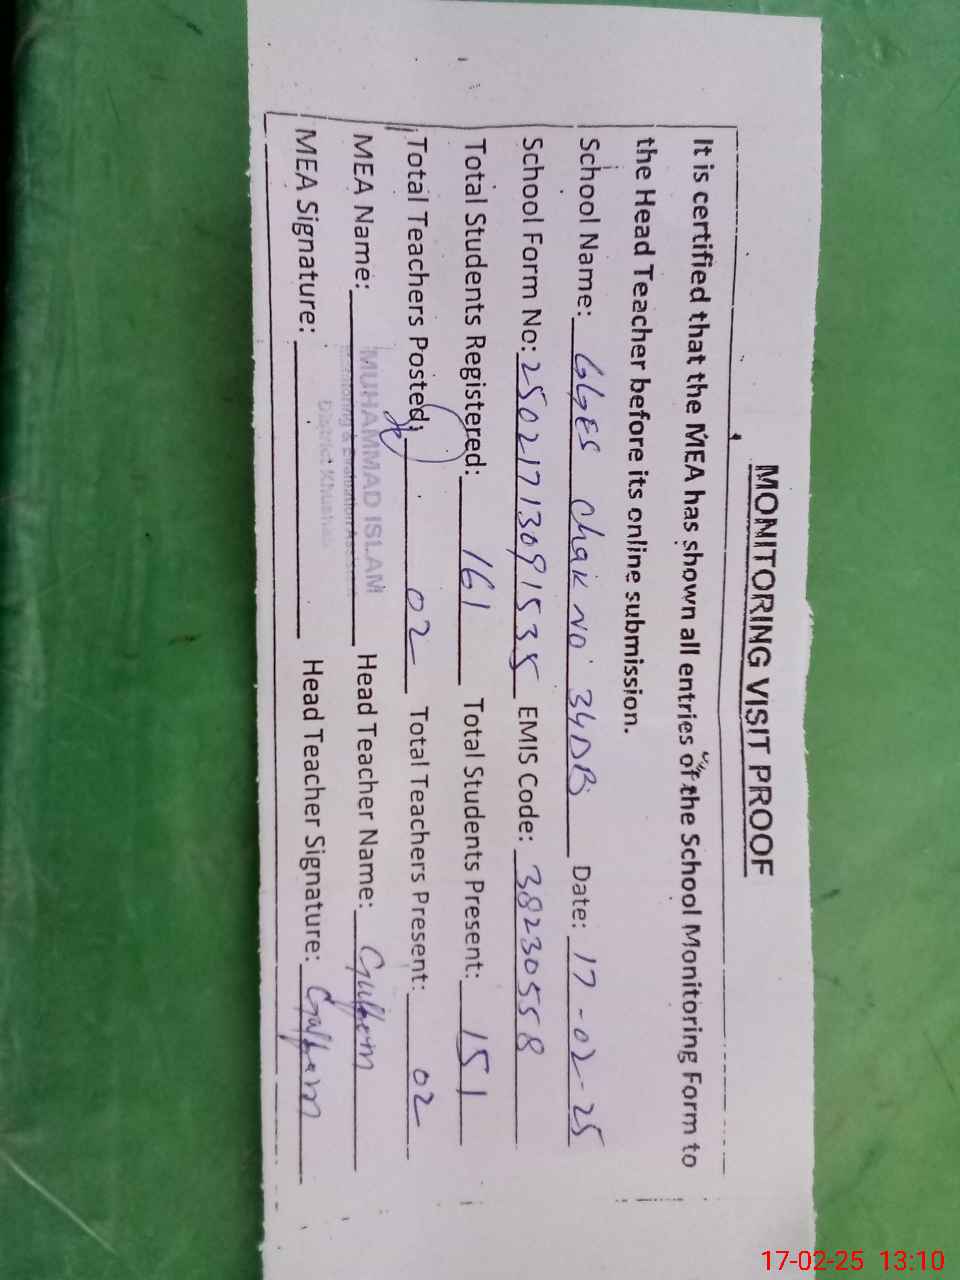 MONITORING VISIT PROOF
It is certified that the MEA has shown all entries of the School Monitoring Form to
the Head Teacher before its online submission.
School Name: GGES Chak No 34DB Date: 17-02-25
School Form No: 25021713091535 EMIS Code: 38230558
Total Students Registered: 161 Total Students Present: 151
Total Teachers Posted: 02 Total Teachers Present: 02
MEA Name: MUHAMMAD ISLAM Head Teacher Name:
Monitoring & Evaluation
MEA Signature: District Khushab Head Teacher Signature:
17-02-25 13:10